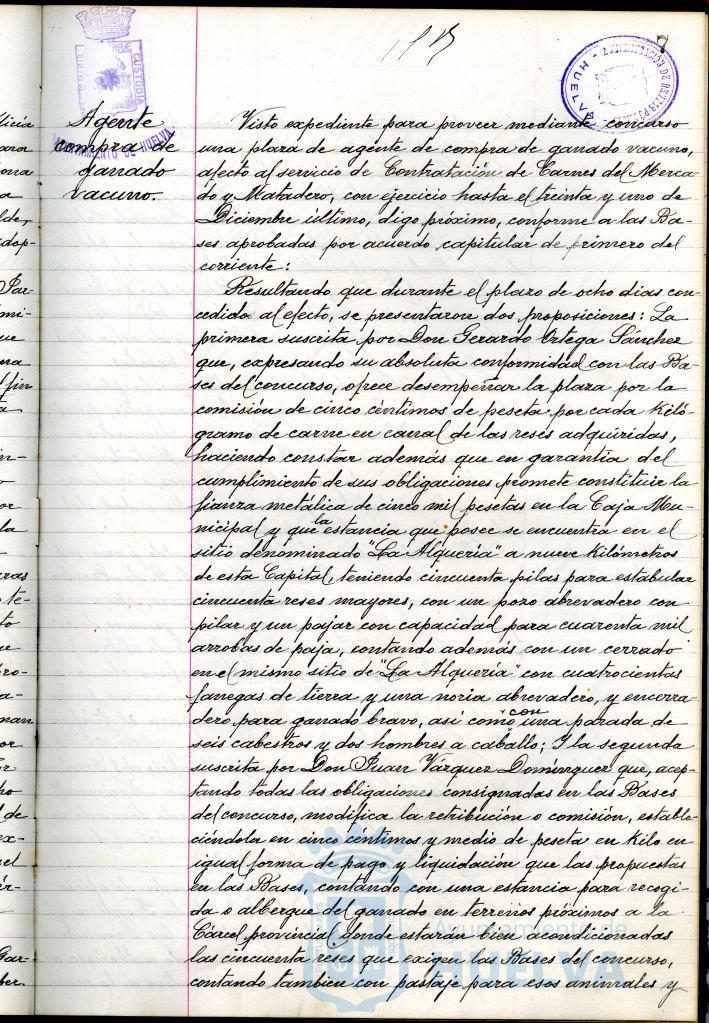 7
Agente
compra de
ganado
vacuno.
AYUNTAMIENTO DE HUELVA
HUELVA
Visto expediente para proveer mediante concurso
una plaza de agente de compra de ganado vacuno,
afecto al servicio de Contratación de Carnes del Merca-
do y Matadero, con ejercicio hasta el treinta y uno de
Diciembre último, digo próximo, conforme a las Ba-
ses aprobadas por acuerdo capitular de primero del
corriente:
Resultando que durante el plazo de ocho dias con-
cedido al efecto, se presentaron dos proposiciones: La
primera suscrita por Don Gerardo Ortega Sánchez
que, expresando su absoluta conformidad con las Ba-
ses del concurso, ofrece desempeñar la plaza por la
comisión de cinco céntimos de peseta por cada kiló-
gramo de carne en canal de las reses adquiridas,
haciendo constar además que en garantia del
cumplimiento de sus obligaciones promete constituir la
fianza metálica de cinco mil pesetas en la Caja Mu-
nicipal y que la estancia que posee se encuentra en el
sitio denominado "La Alqueria" a nueve kilómetros
de esta Capital, teniendo cincuenta pilas para estabular
cincuenta reses mayores, con un pozo abrevadero con
pilar y un pajar con capacidad para cuarenta mil
arrobas de paja, contando además con un cerrado
en el mismo sitio de "La Alquería" con cuatrocientas
fanegas de tierra y una noria abrevadero, y encerra-
dero para ganado bravo, asi como con una parada de
seis cabestros y dos hombres a caballo; Y la segunda
suscrita por Don Juan Vázquez Domínguez que, acep-
tando todas las obligaciones consignadas en las Bases
del concurso, modifica la retribución o comisión, estable-
ciéndola en cinco céntimos y medio de peseta en kilo en
igual forma de pago y liquidación que las propuestas
en las Bases, contando con una estancia para recogi-
da o albergue del ganado en terrenos próximos a la
Cárcel provincial, donde estarán bien acondicionadas
las cincuenta reses que exigen las Bases del concurso,
contando tambien con pastaje para esos animales y
Ayuntamiento de
HUELVA